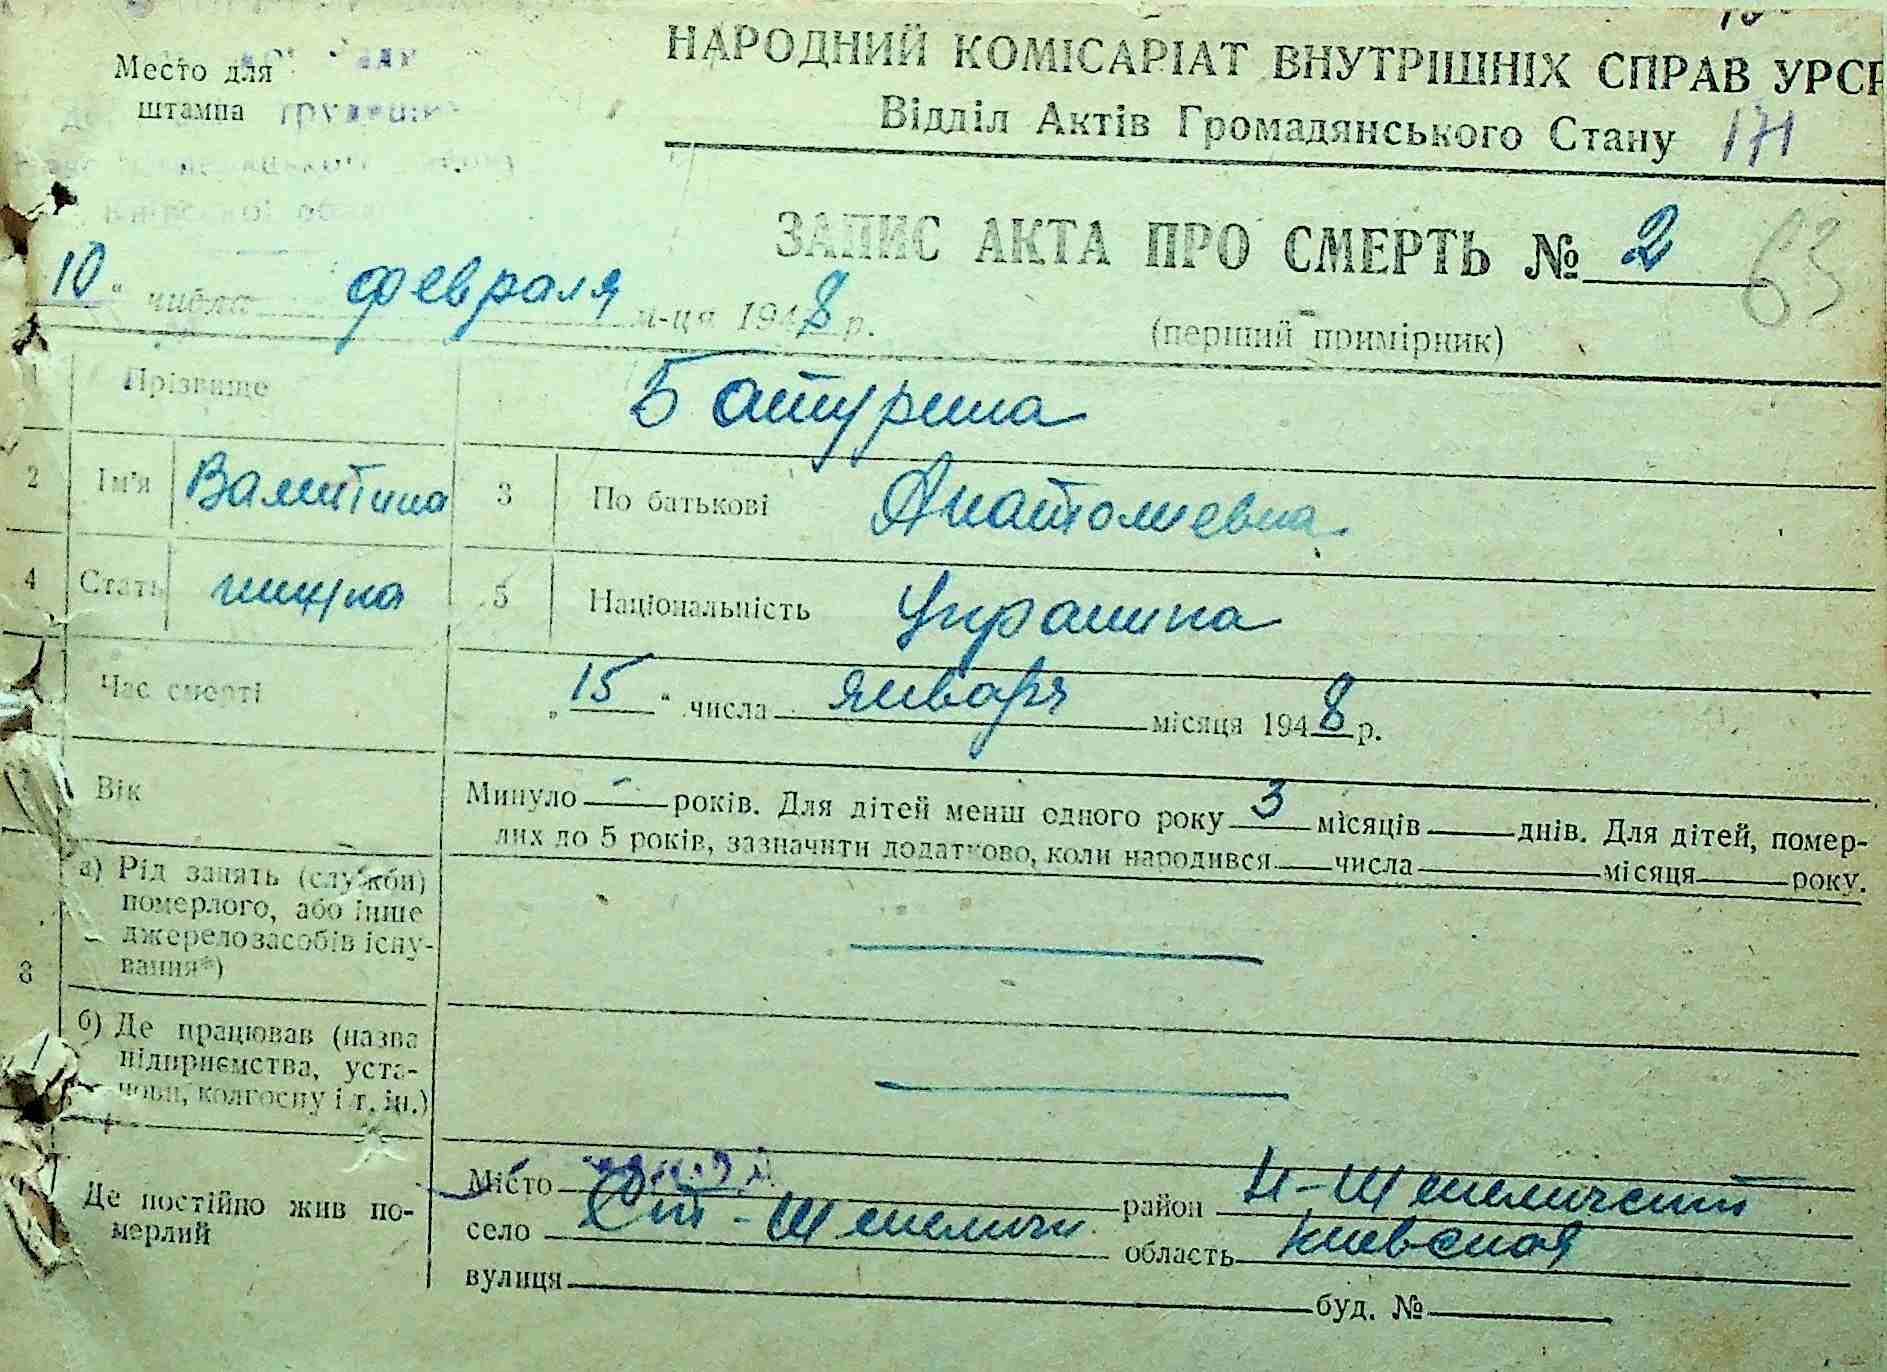 Место для
штампа
НАРОДНИЙ КОМІСАРІАТ ВНУТРІШНІХ СПРАВ УРСР
Відділ Актів Громадянського Стану 171
ЗАПИС АКТА ПРО СМЕРТЬ № 2 63
10 " числа февраля м-ця 1948 р.
(перший примірник)
1 Прізвище Батурина
2 Ім'я Валентина 3 По батькові Анатолиевна
4 Стать 5 Національність Украинка
Час смерті „ 15 " числа января місяця 1948 р.
Вік Минуло - років. Для дітей менш одного року 3 місяців днів. Для дітей, помер-
лих до 5 років, зазначити додатково, коли народився числа місяця року.
8 а) Рід занять (служби)
померлого, або інше
джерело засобів існу-
вання*)
б) Де працював (назва
підприємства, уста-
нови, колгоспу і т. ін.)
Де постійно жив по-
мерлий
Місто район Н-Шепеличский
село Ст-Шепеличи область Киевская
вулиця буд. №